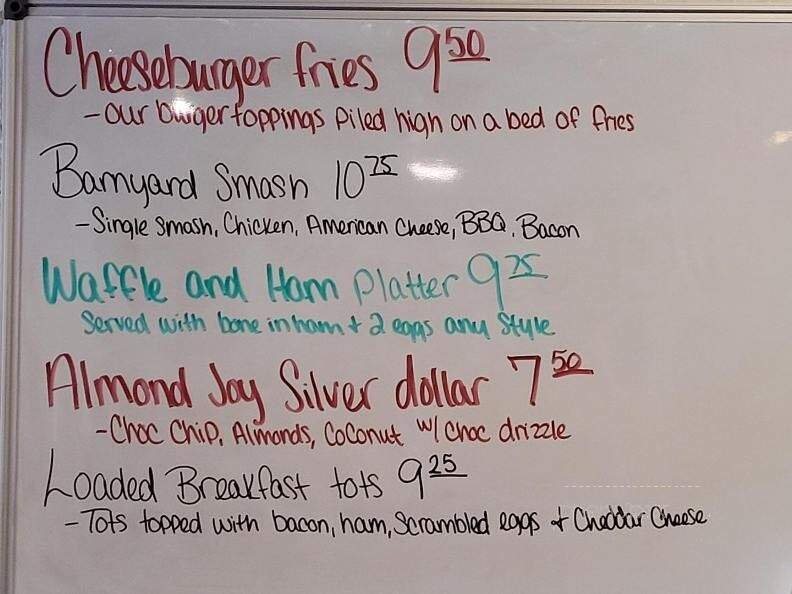 Cheeseburger fries 9 50
- Our burger toppings piled high on a bed of fries
Barnyard Smash 10 75
- Single smash, Chicken, American Cheese, BBQ, Bacon
Waffle and Ham Platter 9 75
Served with bone in ham + 2 eggs any Style
Almond Joy Silver dollar 7 50
- Choc Chip, Almonds, Coconut w/ choc drizzle
Loaded Breakfast tots 9 25
- Tots topped with bacon, ham, Scrambled eggs + Cheddar Cheese